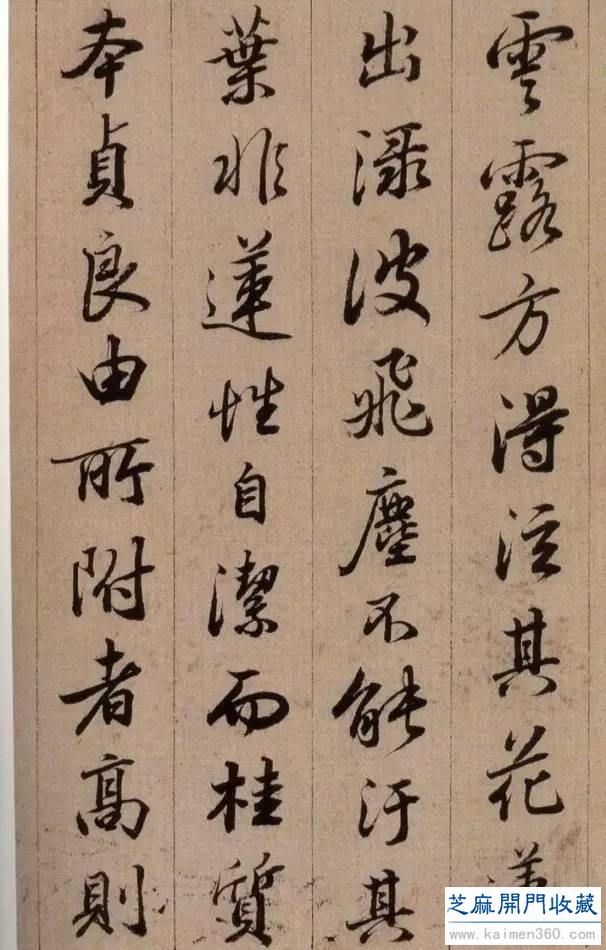 雲露方得泫其花
出淥波飛塵不能汙其
葉非蓮性自潔而桂質
本貞良由所附者高則
芝麻開門收藏
www.kaimen360.com